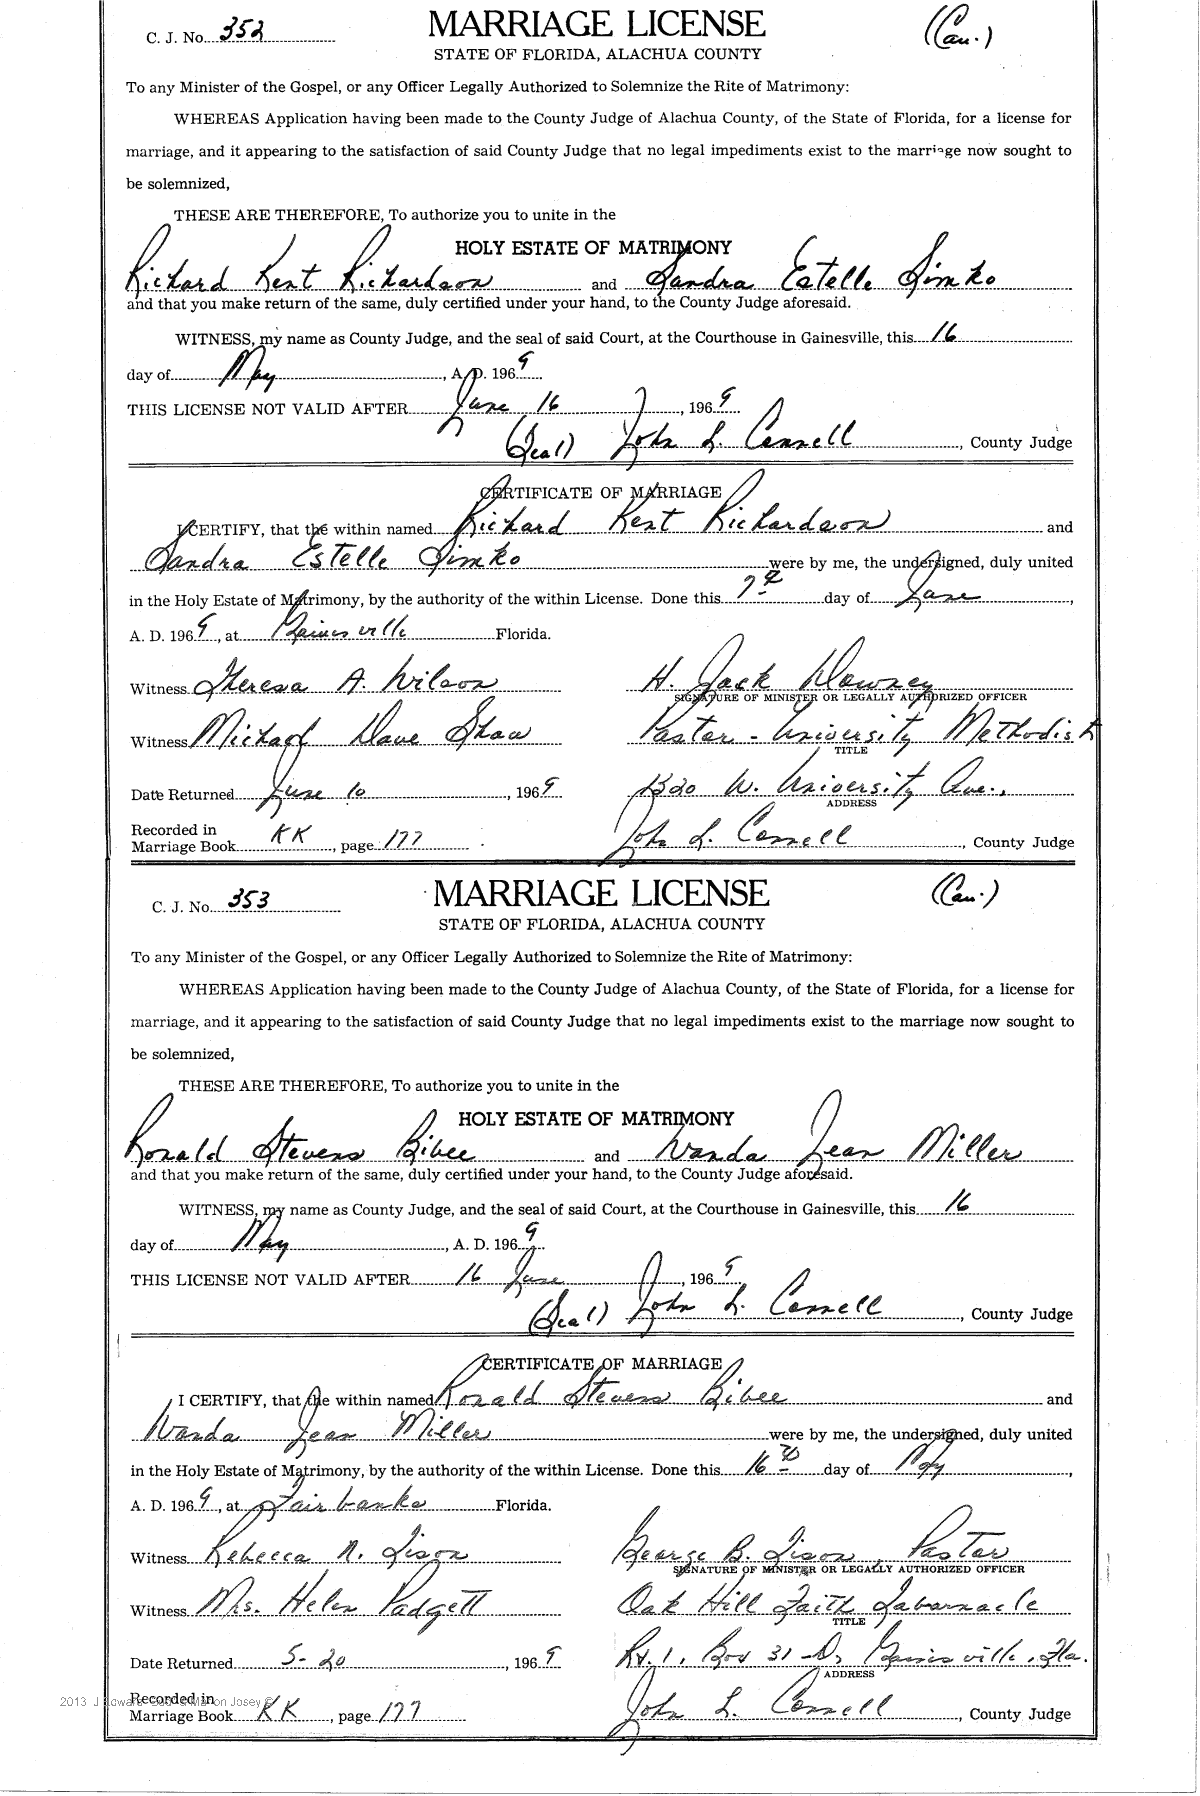 C. J. No. 352
MARRIAGE LICENSE
(Cau.)
STATE OF FLORIDA, ALACHUA COUNTY
To any Minister of the Gospel, or any Officer Legally Authorized to Solemnize the Rite of Matrimony:
WHEREAS Application having been made to the County Judge of Alachua County, of the State of Florida, for a license for
marriage, and it appearing to the satisfaction of said County Judge that no legal impediments exist to the marriage now sought to
be solemnized,
THESE ARE THEREFORE, To authorize you to unite in the
HOLY ESTATE OF MATRIMONY
Richard Kent Richardson and Sandra Estelle Simko
and that you make return of the same, duly certified under your hand, to the County Judge aforesaid.
WITNESS, my name as County Judge, and the seal of said Court, at the Courthouse in Gainesville, this 16
day of May, A. D. 1969
THIS LICENSE NOT VALID AFTER June 16, 1969
(Seal) John L. Connell, County Judge
CERTIFICATE OF MARRIAGE
I CERTIFY, that the within named Richard Kent Richardson and
Sandra Estelle Simko were by me, the undersigned, duly united
in the Holy Estate of Matrimony, by the authority of the within License. Done this 7 day of June,
A. D. 1969, at Gainesville Florida.
Witness Theresa A. Wilson H. Jack Downey
SIGNATURE OF MINISTER OR LEGALLY AUTHORIZED OFFICER
Witness Michael Dave Shaw Pastor - University Methodist
TITLE
Date Returned June 10, 1969 1320 W. University Ave.,
ADDRESS
Recorded in
Marriage Book KK, page 177 John L. Connell, County Judge
C. J. No. 353
MARRIAGE LICENSE
(Cau.)
STATE OF FLORIDA, ALACHUA COUNTY
To any Minister of the Gospel, or any Officer Legally Authorized to Solemnize the Rite of Matrimony:
WHEREAS Application having been made to the County Judge of Alachua County, of the State of Florida, for a license for
marriage, and it appearing to the satisfaction of said County Judge that no legal impediments exist to the marriage now sought to
be solemnized,
THESE ARE THEREFORE, To authorize you to unite in the
HOLY ESTATE OF MATRIMONY
Ronald Stevens Bibee and Wanda Jean Miller
and that you make return of the same, duly certified under your hand, to the County Judge aforesaid.
WITNESS, my name as County Judge, and the seal of said Court, at the Courthouse in Gainesville, this 16
day of May, A. D. 1969
THIS LICENSE NOT VALID AFTER 16 June, 1969
(Seal) John L. Connell, County Judge
CERTIFICATE OF MARRIAGE
I CERTIFY, that the within named Ronald Stevens Bibee and
Wanda Jean Miller were by me, the undersigned, duly united
in the Holy Estate of Matrimony, by the authority of the within License. Done this 16 day of May,
A. D. 1969, at Fairbanks Florida.
Witness Rebecca N. Tison George B. Tison, Pastor
SIGNATURE OF MINISTER OR LEGALLY AUTHORIZED OFFICER
Witness Mrs. Helen Padgett Oak Hill Faith Tabarnacle
TITLE
Date Returned 5-20, 1969 Rt. 1, Box 31-D, Gainesville, Fla.
ADDRESS
2013 Josey
Recorded in
Marriage Book KK, page 177 John L. Connell, County Judge